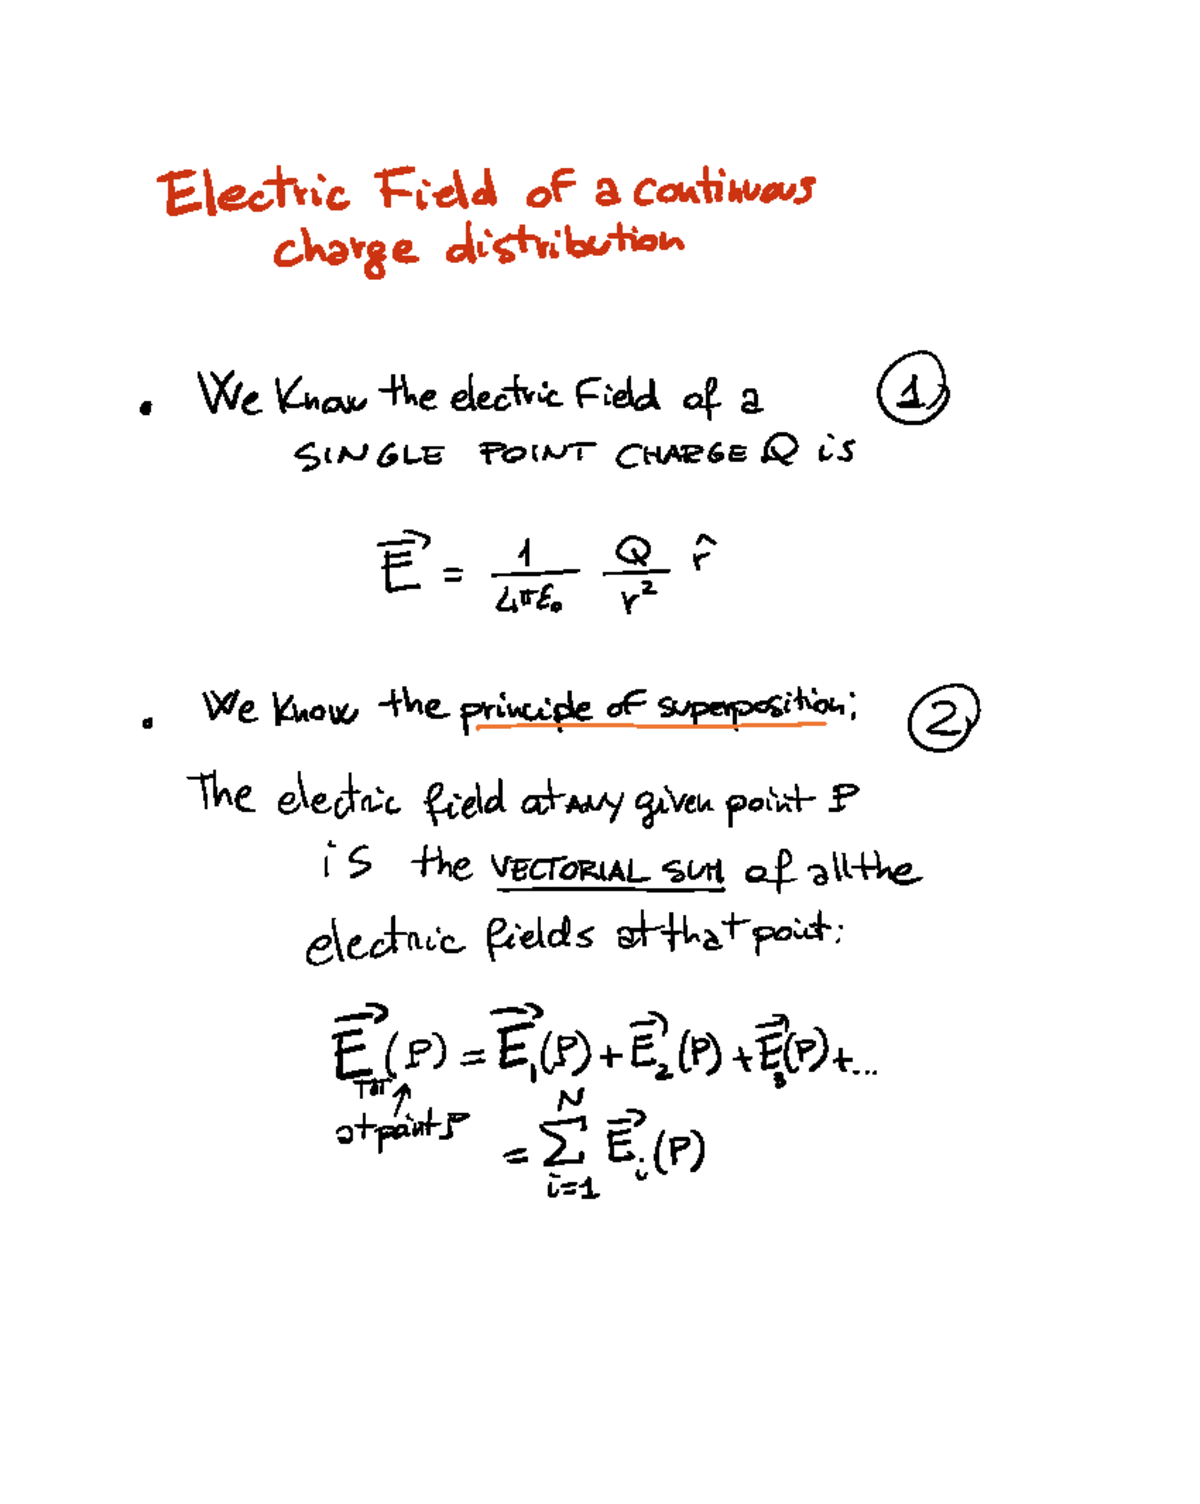 Electric Field of a continuous
charge distribution
• We Know the electric Field of a ①
SINGLE POINT CHARGE Q is
E⃗ = 1/4πε₀ Q/r² r̂
• We Know the principle of superposition; ②
The electric field at ANY given point P
is the VECTORIAL SUM of all the
electric fields at that point:
E⃗_TOT(P) = E⃗₁(P) + E⃗₂(P) + E⃗₃(P) + ...
at point P
= ∑_{i=1}^{N} E⃗_i(P)